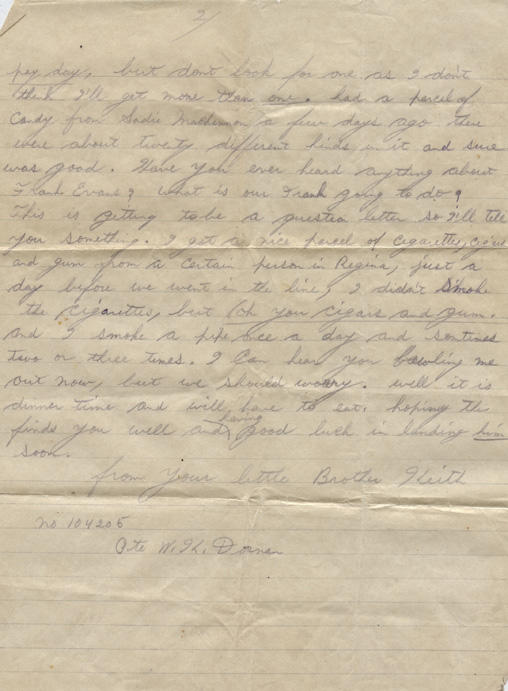 2/
pay day, but dont look for one as I don't
think I'll get more than one. had a parcel of
Candy from Sadie MacKinnon a few days ago there
were about twenty different kinds in it and sure
was good. Have you ever heard anything about
Frank Evans? what is our Frank going to do?
This is getting to be a question letter so I'll tell
you something. I got a nice parcel of cigarettes, cigars
and gum from a certain person in Regina, just a
day before we went in the line, I didn't Smoke
the cigarettes, but Oh you cigars and gum.
and I smoke a pipe once a day and sometimes
two or three times. I can hear you bawling me
out now, but we should worry. well it is
dinner time and will have to eat. hoping this
finds you well and having good luck in landing him
soon.
from your little Brother Keith
no 104205
Pte W. K. Dorner